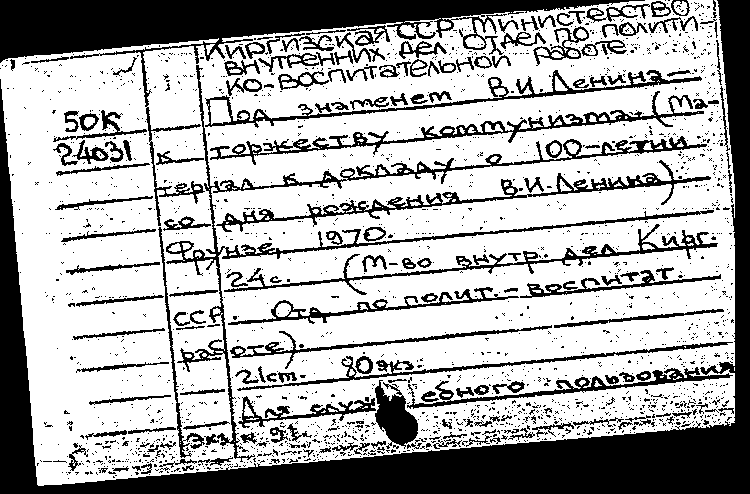 Киргизская ССР. Министерство
внутренних дел. Отдел по полити-
ко-воспитательной работе.
50К Под знаменем В.И. Ленина -
24031 к торжеству коммунизма. (Ма-
териал к докладу о 100-летии
со дня рождения В.И. Ленина).
Фрунзе, 1970.
24с. (М-во внутр. дел Кирг.
ССР. Отд. по полит.-воспитат.
работе).
21cm. 80экз.
Для служебного пользования
Экз. № 91